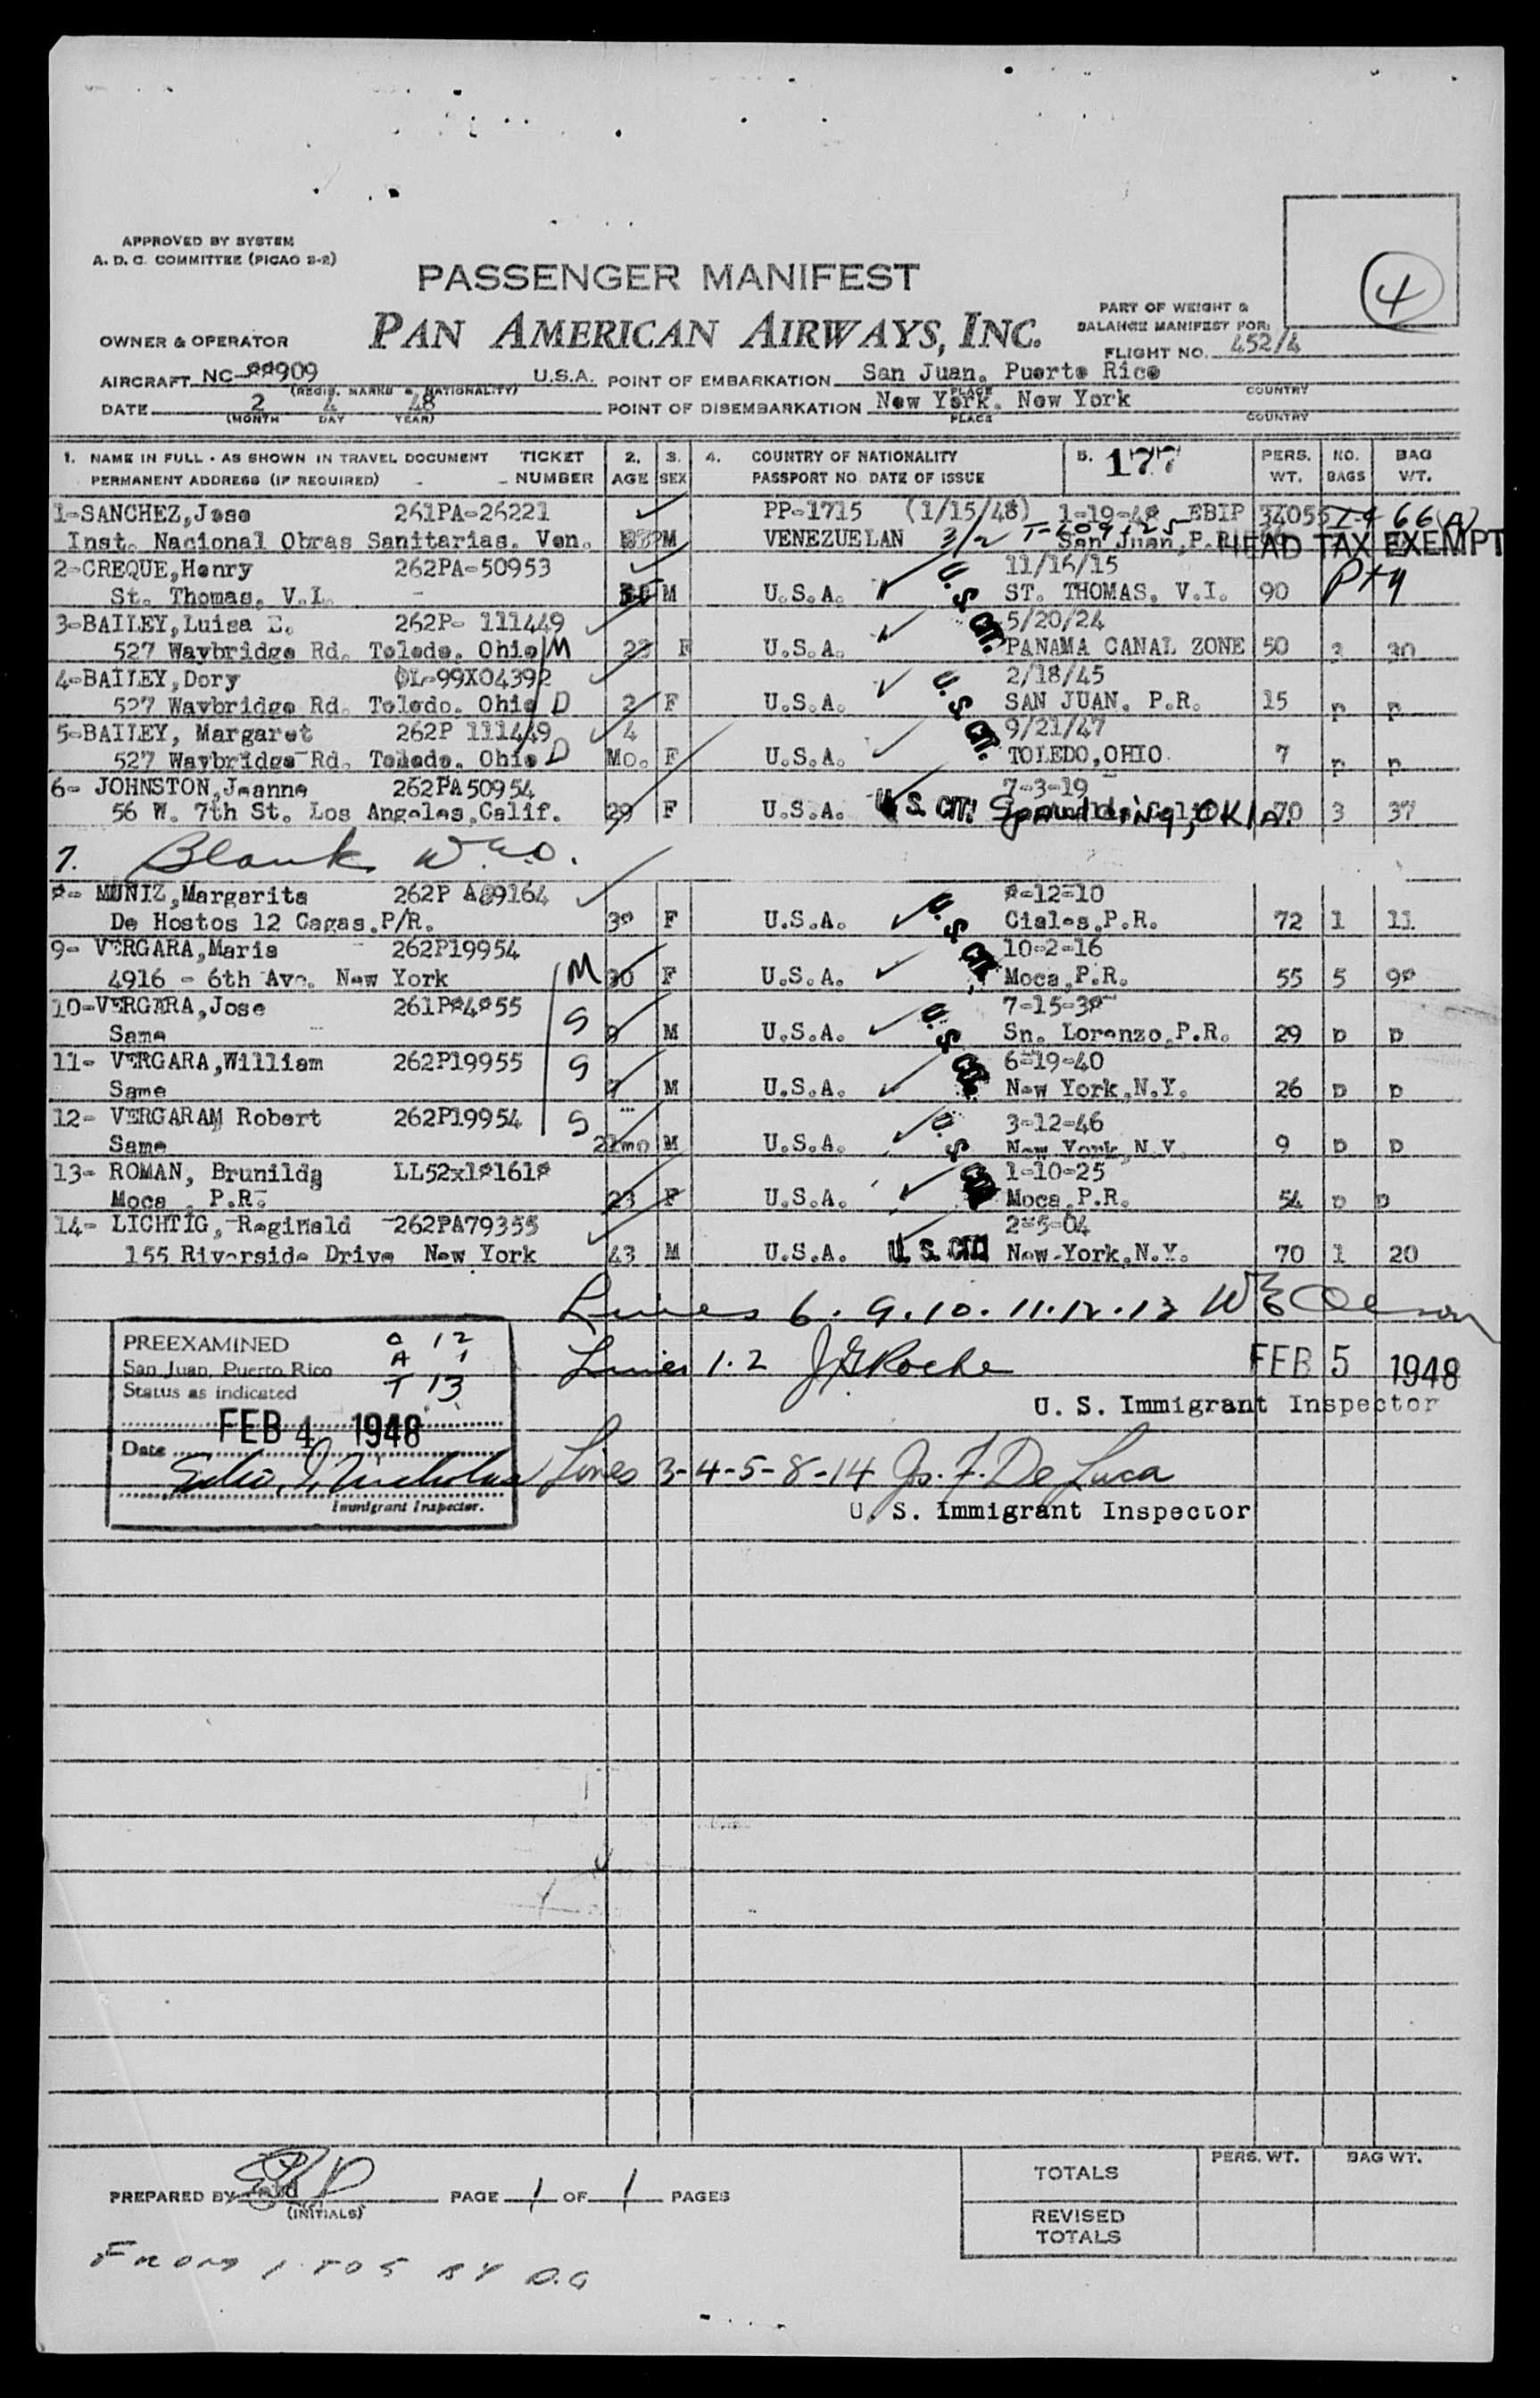 APPROVED BY SYSTEM
A. D. C. COMMITTEE (PICAO 3-2)
4
PASSENGER MANIFEST
PAN AMERICAN AIRWAYS, INC.
PART OF WEIGHT &
BALANCE MANIFEST FOR:
FLIGHT NO. 452/4
OWNER & OPERATOR
AIRCRAFT NC-88909 U.S.A. POINT OF EMBARKATION San Juan, Puerto Rico
(REGIS. MARKS & NATIONALITY) PLACE COUNTRY
DATE 2 4 48 POINT OF DISEMBARKATION New York, New York
(MONTH DAY YEAR) PLACE COUNTRY
1. NAME IN FULL - AS SHOWN IN TRAVEL DOCUMENT TICKET 2. 3. 4. COUNTRY OF NATIONALITY 5. 177 PERS. NO. BAG
PERMANENT ADDRESS (IF REQUIRED) NUMBER AGE SEX PASSPORT NO DATE OF ISSUE WT. BAGS WT.
1-SANCHEZ,Jose 261PA-26221 PP-1715 (1/15/48) 1-19-48 EBIP 66(A)
Inst. Nacional Obras Sanitarias, Ven. M VENEZUELAN 3/2 San Juan,P.R. HEAD TAX EXEMPT
2-CREQUE,Henry 262PA-50953 11/16/15
St. Thomas, V.I. M U.S.A. U. S. CIT. ST. THOMAS, V.I. 90
3-BAILEY,Luisa E. 262P- 111449 5/20/24
527 Waybridge Rd. Toledo, Ohio M 23 F U.S.A. PANAMA CANAL ZONE 50 3 30
4-BAILEY,Dory OL-99X04392 2/18/45
527 Waybridge Rd. Toledo, Ohio D 2 F U.S.A. U. S. CIT. SAN JUAN, P.R. 15 p p
5-BAILEY, Margaret 262P 111449 4 9/21/47
527 Waybridge Rd. Toledo, Ohio D Mo. F U.S.A. TOLEDO,OHIO 7 p p
6- JOHNSTON,Jeanne 262PA50954 7-3-19
56 W. 7th St. Los Angeles,Calif. 29 F U.S.A. U. S. CIT. Spaulding, OKla. 70 3 37
7. Blank W.E.O.
8- MUNIZ,Margarita 262P A89164 8-12-10
De Hostos 12 Cagas.P/R. 38 F U.S.A. U. S. CIT. Ciales,P.R. 72 1 11
9- VERGARA,Maria 262P19954 10-2-16
4916 - 6th Ave. New York M 30 F U.S.A. Moca,P.R. 55 5 98
10-VERGARA,Jose 261P84855 7-15-38
Same S 9 M U.S.A. U. S. CIT. Sn. Lorenzo,P.R. 29 p p
11- VERGARA,William 262P19955 6-19-40
Same S 7 M U.S.A. New York,N.Y. 26 p p
12- VERGARAM Robert 262P19954 3-12-46
Same S 21mo M U.S.A. U. S. CIT. New York,N.Y. 9 p p
13- ROMAN, Brunilda LL52x181618 1-10-25
Moca , P.R. 23 F U.S.A. Moca,P.R. 54 p p
14- LICHTIG, Reginald 262PA79355 2-5-04
155 Riverside Drive New York 43 M U.S.A. U. S. CIT. New York,N.Y. 70 1 20
Lines 6. 9.10.11.12.13 W E Olson
PREEXAMINED C 12
San Juan, Puerto Rico A 1
Status as indicated T 13
Lines 1.2 J G Roche FEB 5 1948
U. S. Immigrant Inspector
FEB 4 1948
Date
Lines 3-4-5-8-14 Jos. F. De Luca
Immigrant Inspector.
U. S. Immigrant Inspector
PREPARED BY PAGE 1 OF 1 PAGES
(INITIALS)
PERS. WT. BAG WT.
TOTALS
REVISED
TOTALS
FROM 1 TO 5 BY O.G